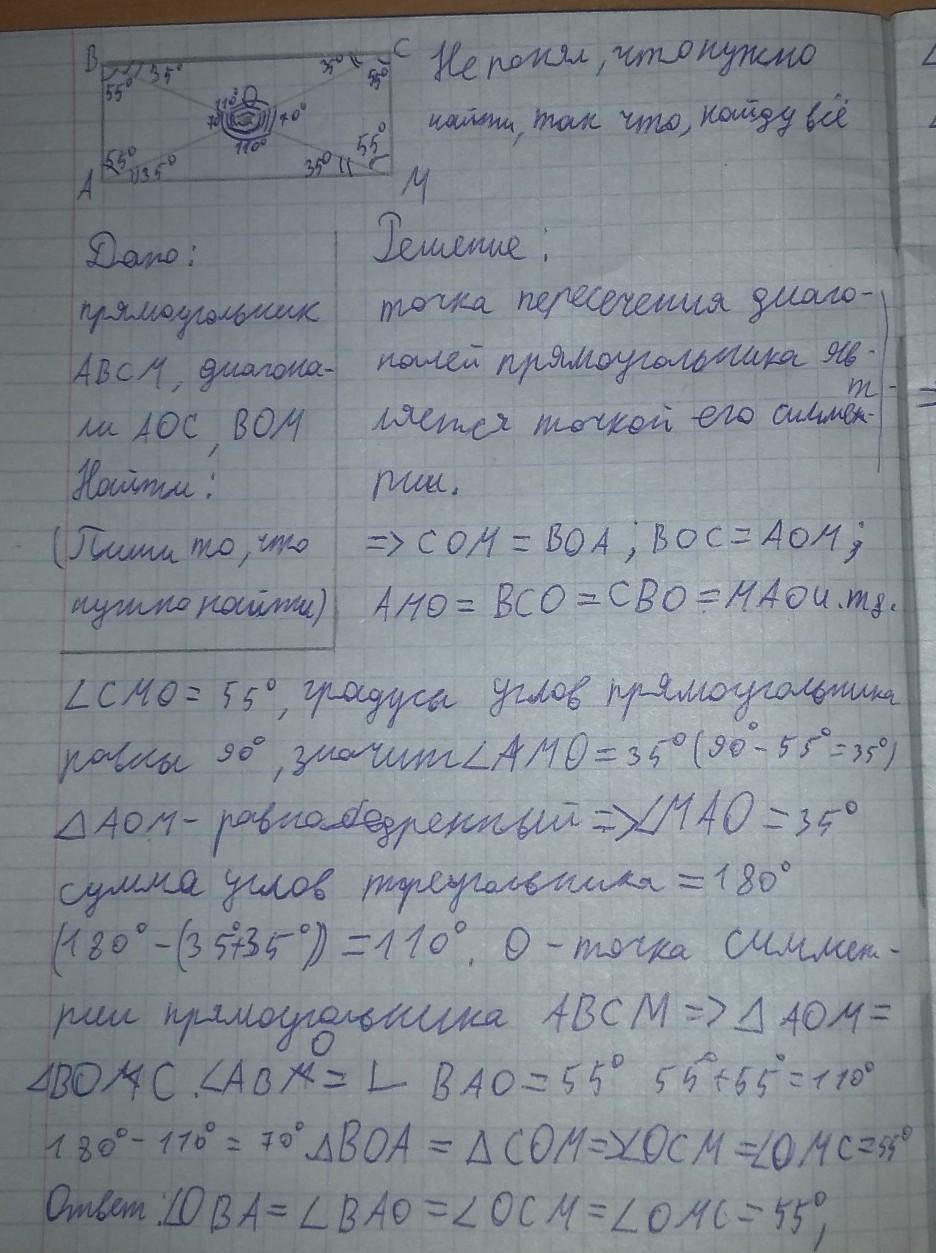 B 35° 35° C
55° 55°
110° O
70° 70°
110°
55° 35° 35° 55°
A M
Не понял, что нужно
найти, так что, найду всё
Дано:
прямоугольник
ABCM, диагона-
ли AOC, BOM
Найти:
(Пиши то, что
нужно найти)
Решение:
точка пересечения диаго-
налей прямоугольника яв-
ляется точкой его симмет-
рии.
=> COM = BOA; BOC = AOM;
AMO = BCO = CBO = MAO и.тд.
∠CMO = 55°, градусы углов прямоугольника
равны 90°, значит ∠AMO = 35° (90° - 55° = 35°)
△AOM - равнобедренный => ∠MAO = 35°
сумма углов треугольника = 180°
(180° - (35°+35°)) = 110°. O - точка симмет-
рии прямоугольника ABCM => △AOM =
△BOC. ∠ABO = ∠BAO = 55° 55°+55° = 110°
180° - 110° = 70° △BOA = △COM => ∠OCM = ∠OMC = 55°
Ответ: ∠OBA = ∠BAO = ∠OCM = ∠OMC = 55°,